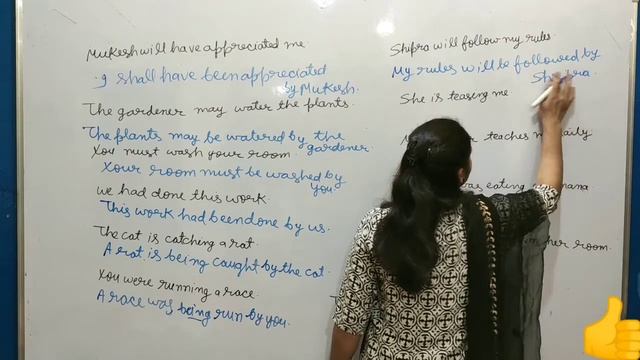 Mukesh will have appreciated me
I shall have been appreciated
by Mukesh.
The gardener may water the plants.
The plants may be watered by the
gardener
You must wash your room.
Your room must be washed by
you
we had done this work.
This work had been done by us.
The cat is catching a rat.
A rat is being caught by the cat.
You were running a race.
A race was being run by you.
Shipra will follow my rules.
My rules will be followed by
She is teasing me
teaches daily
was eating
her room.